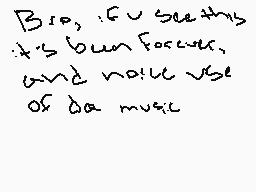 Bro, if u see this
it's been forever,
and noice use
of da music